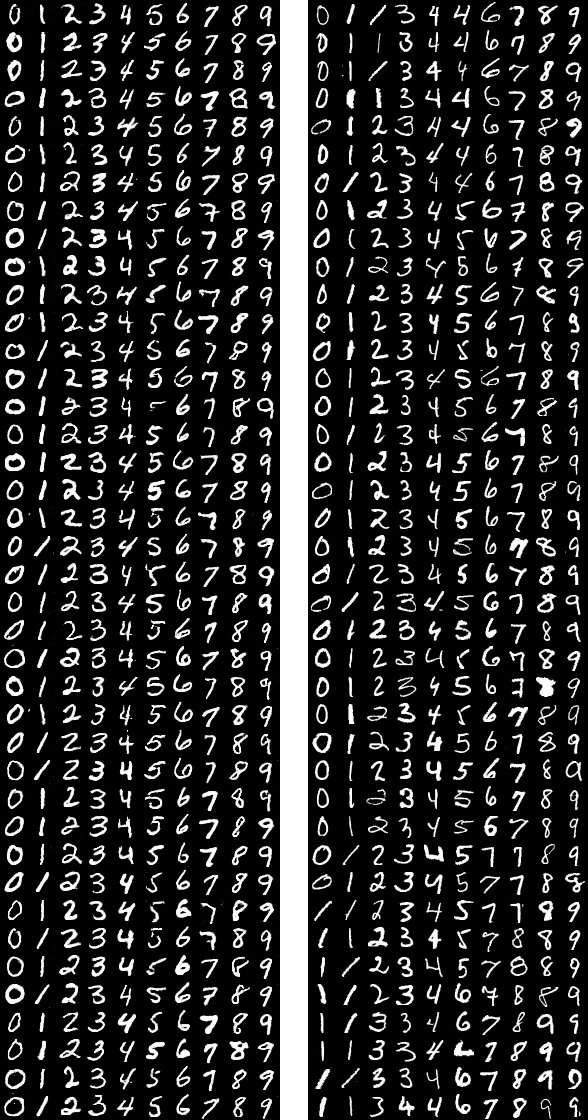 0 1 2 3 4 5 6 7 8 9
0 1 2 3 4 5 6 7 8 9
0 1 2 3 4 5 6 7 8 9
0 1 2 3 4 5 6 7 8 9
0 1 2 3 4 5 6 7 8 9
0 1 2 3 4 5 6 7 8 9
0 1 2 3 4 5 6 7 8 9
0 1 2 3 4 5 6 7 8 9
0 1 2 3 4 5 6 7 8 9
0 1 2 3 4 5 6 7 8 9
0 1 2 3 4 5 6 7 8 9
0 1 2 3 4 5 6 7 8 9
0 1 2 3 4 5 6 7 8 9
0 1 2 3 4 5 6 7 8 9
0 1 2 3 4 5 6 7 8 9
0 1 2 3 4 5 6 7 8 9
0 1 2 3 4 5 6 7 8 9
0 1 2 3 4 5 6 7 8 9
0 1 2 3 4 5 6 7 8 9
0 1 2 3 4 5 6 7 8 9
0 1 2 3 4 5 6 7 8 9
0 1 2 3 4 5 6 7 8 9
0 1 2 3 4 5 6 7 8 9
0 1 2 3 4 5 6 7 8 9
0 1 2 3 4 5 6 7 8 9
0 1 2 3 4 5 6 7 8 9
0 1 2 3 4 5 6 7 8 9
0 1 2 3 4 5 6 7 8 9
0 1 2 3 4 5 6 7 8 9
0 1 2 3 4 5 6 7 8 9
0 1 2 3 4 5 6 7 8 9
0 1 2 3 4 5 6 7 8 9
0 1 2 3 4 5 6 7 8 9
0 1 2 3 4 5 6 7 8 9
0 1 2 3 4 5 6 7 8 9
0 1 2 3 4 5 6 7 8 9
0 1 2 3 4 5 6 7 8 9
0 1 2 3 4 5 6 7 8 9
0 1 2 3 4 5 6 7 8 9
0 1 2 3 4 5 6 7 8 9
0 1 1 3 4 4 6 7 8 9
0 1 1 3 4 4 6 7 8 9
0 1 1 3 4 4 6 7 8 9
0 1 1 3 4 4 6 7 8 9
0 1 2 3 4 4 6 7 8 9
0 1 2 3 4 4 6 7 8 9
0 1 2 3 4 4 6 7 8 9
0 1 2 3 4 5 6 7 8 9
0 1 2 3 4 5 6 7 8 9
0 1 2 3 4 5 6 7 8 9
0 1 2 3 4 5 6 7 8 9
0 1 2 3 4 5 6 7 8 9
0 1 2 3 4 5 6 7 8 9
0 1 2 3 4 5 6 7 8 9
0 1 2 3 4 5 6 7 8 9
0 1 2 3 4 5 6 7 8 9
0 1 2 3 4 5 6 7 8 9
0 1 2 3 4 5 6 7 8 9
0 1 2 3 4 5 6 7 8 9
0 1 2 3 4 5 6 7 8 9
0 1 2 3 4 5 6 7 8 9
0 1 2 3 4 5 6 7 8 9
0 1 2 3 4 5 6 7 8 9
0 1 2 3 4 5 6 7 8 9
0 1 2 3 4 5 6 7 8 9
0 1 2 3 4 5 6 7 8 9
0 1 2 3 4 5 6 7 8 9
0 1 2 3 4 5 6 7 8 9
0 1 2 3 4 5 6 7 8 9
0 1 2 3 4 5 6 7 8 9
0 1 2 3 4 5 7 7 8 9
0 1 2 3 4 5 7 7 8 8
1 1 2 3 4 5 7 7 8 9
1 1 2 3 4 5 7 8 8 9
1 1 2 3 4 5 7 8 8 9
1 1 2 3 4 6 7 8 8 9
1 1 3 3 4 6 7 8 9 9
1 1 3 3 4 6 7 8 9 9
1 1 3 3 4 6 7 8 9 9
1 1 3 4 4 6 7 8 9 9